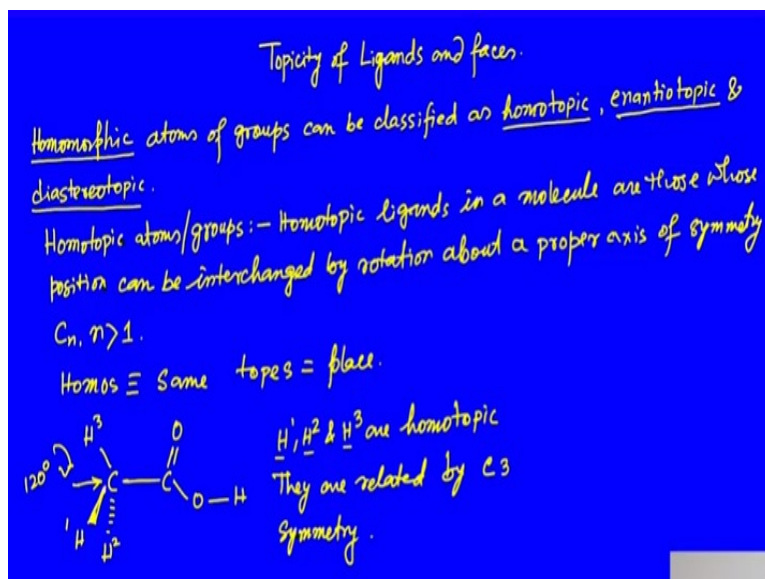 Topicity of Ligands and faces.
Homomorphic atoms of groups can be classified as homotopic, enantiotopic &
diastereotopic.
Homotopic atoms/groups:- Homotopic ligands in a molecule are those whose
position can be interchanged by rotation about a proper axis of symmetry
Cn, n>1.
Homos ≡ Same topes = place.
H3 O
120° C C O-H
1H H2
H1, H2 & H3 are homotopic
They are related by C3
Symmetry.